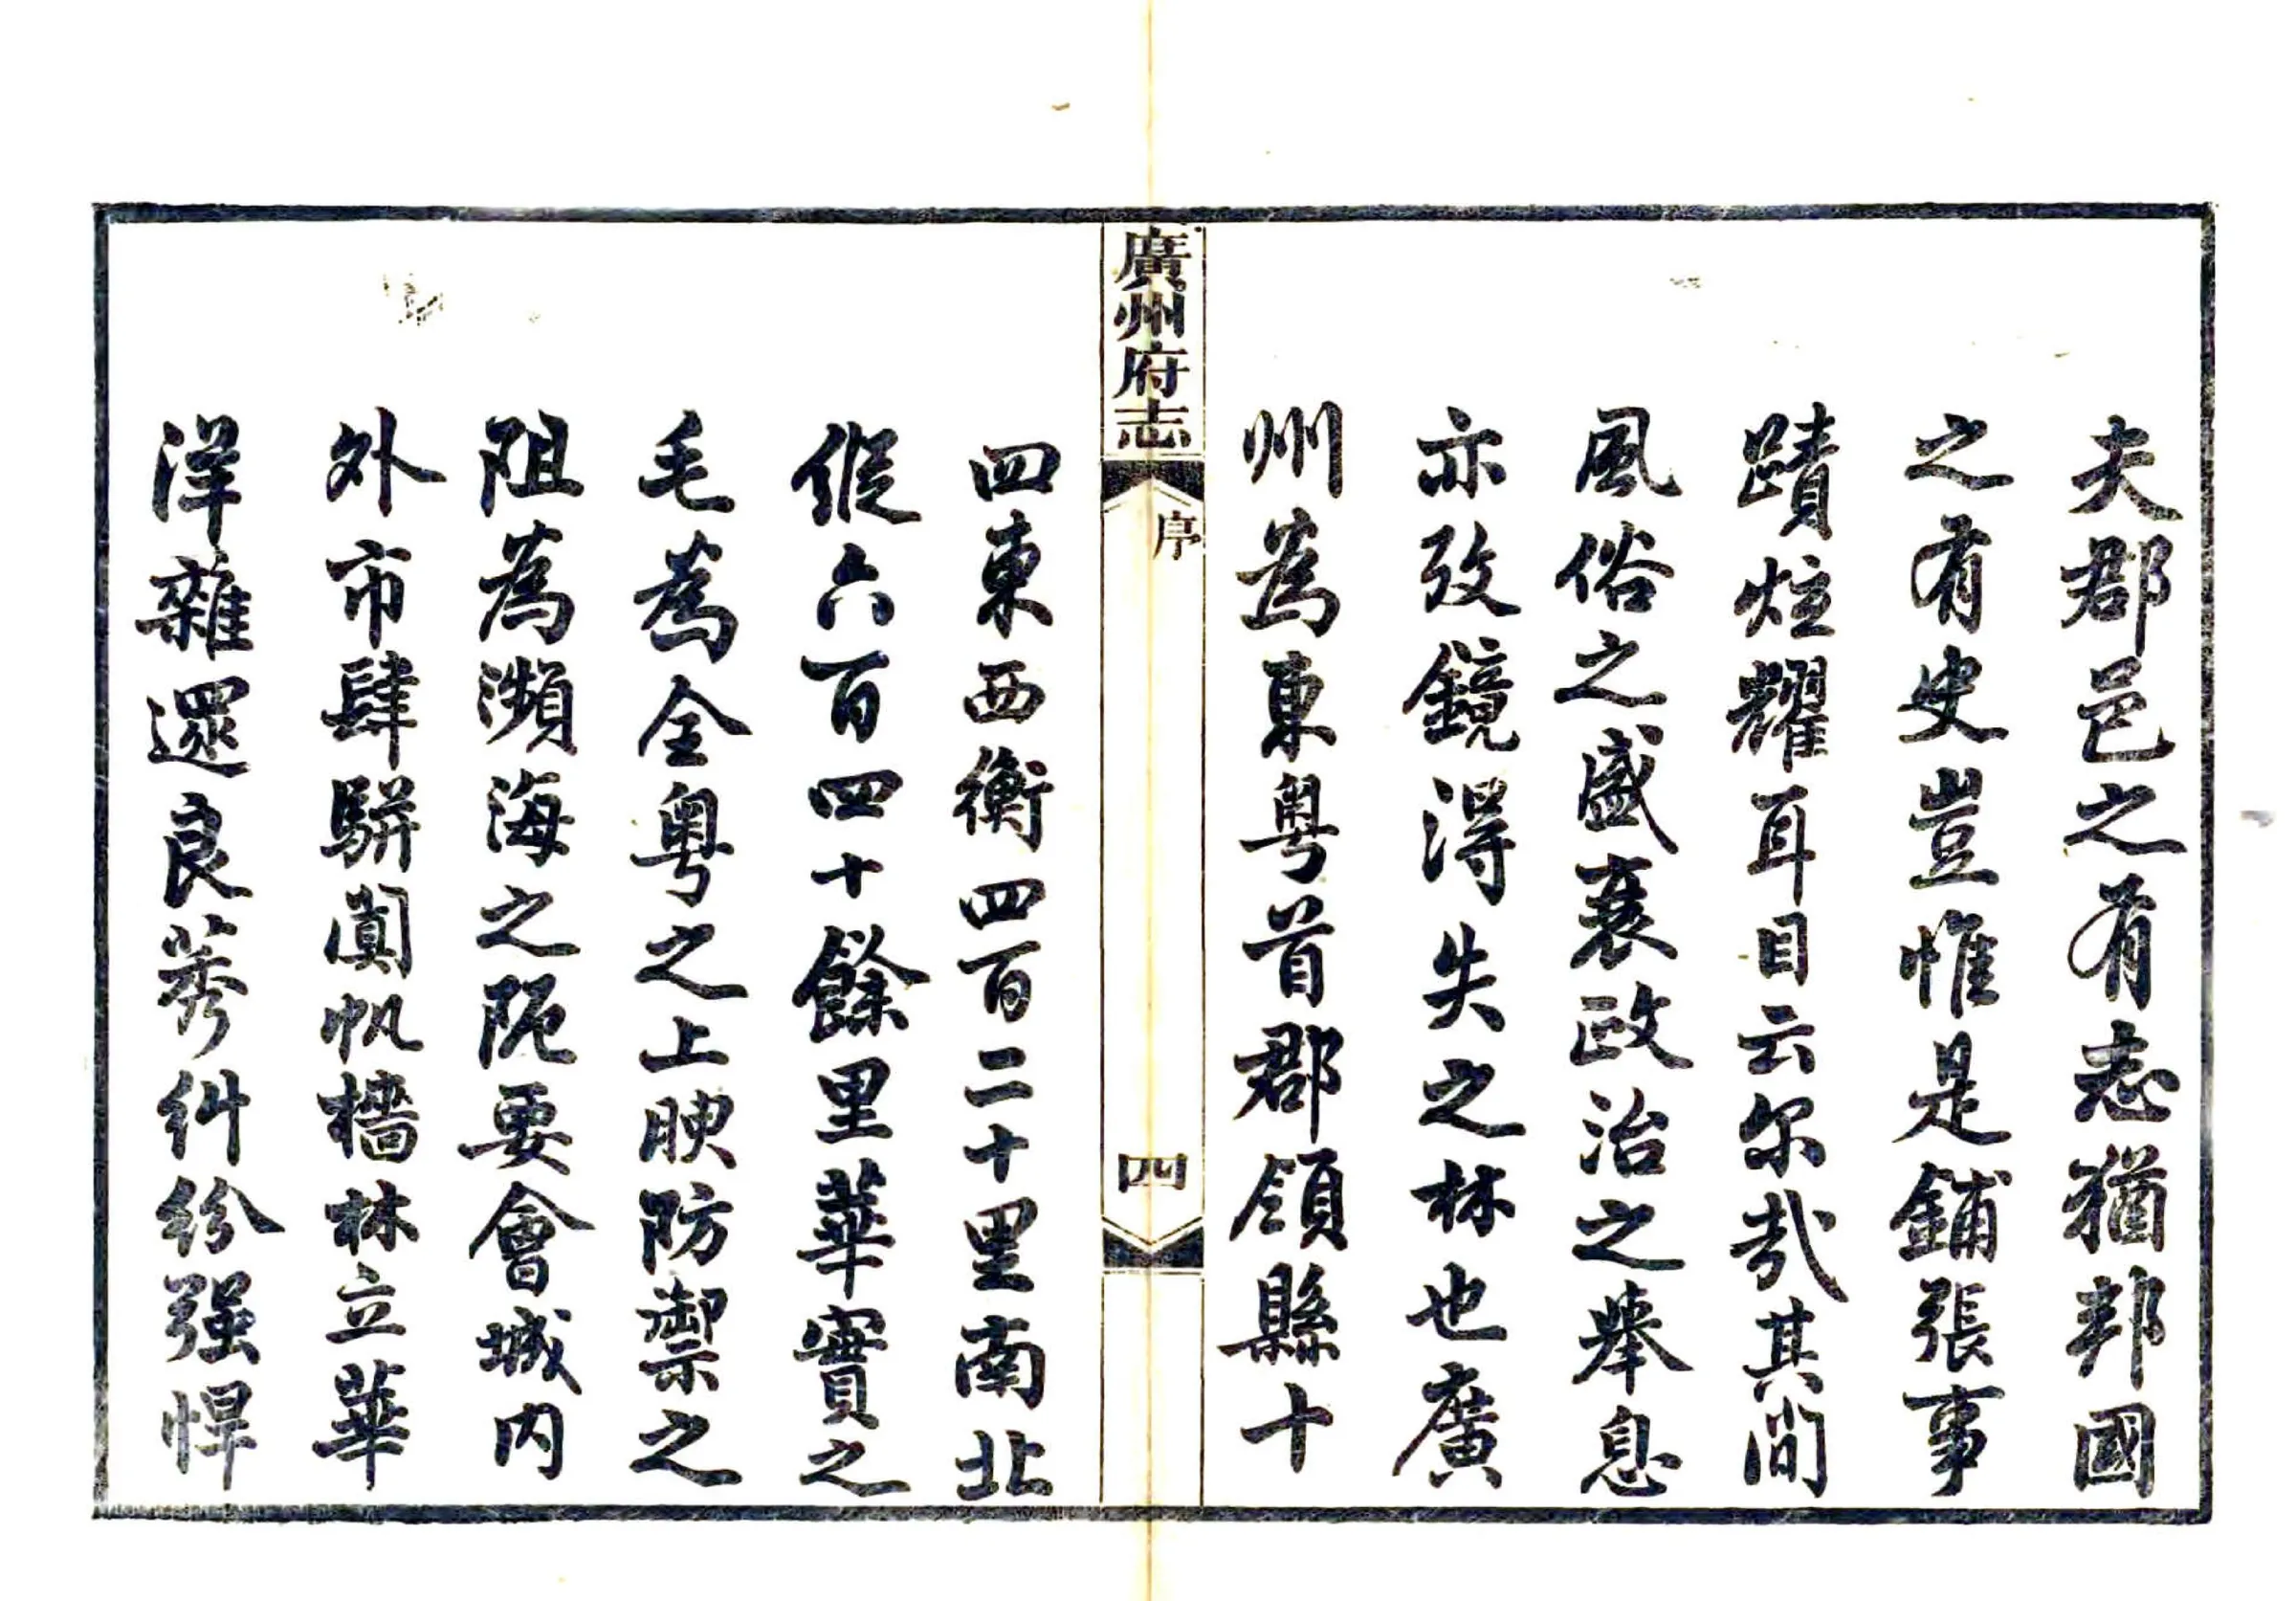 夫郡邑之有志猶邦國
之有史豈惟是鋪張事
蹟炫耀耳目云尔哉其間
風俗之盛衰政治之舉息
亦攷鏡淂失之林也廣
州為東粤首郡領縣十
廣州府志
序
四
四東西衡四百二十里南北
縱六百四十餘里華實之
毛為全粤之上腴防禦之
阻為瀕海之阨要會城内
外市肆駢闐帆檣林立華
洋雜遝良莠糾紛强悍